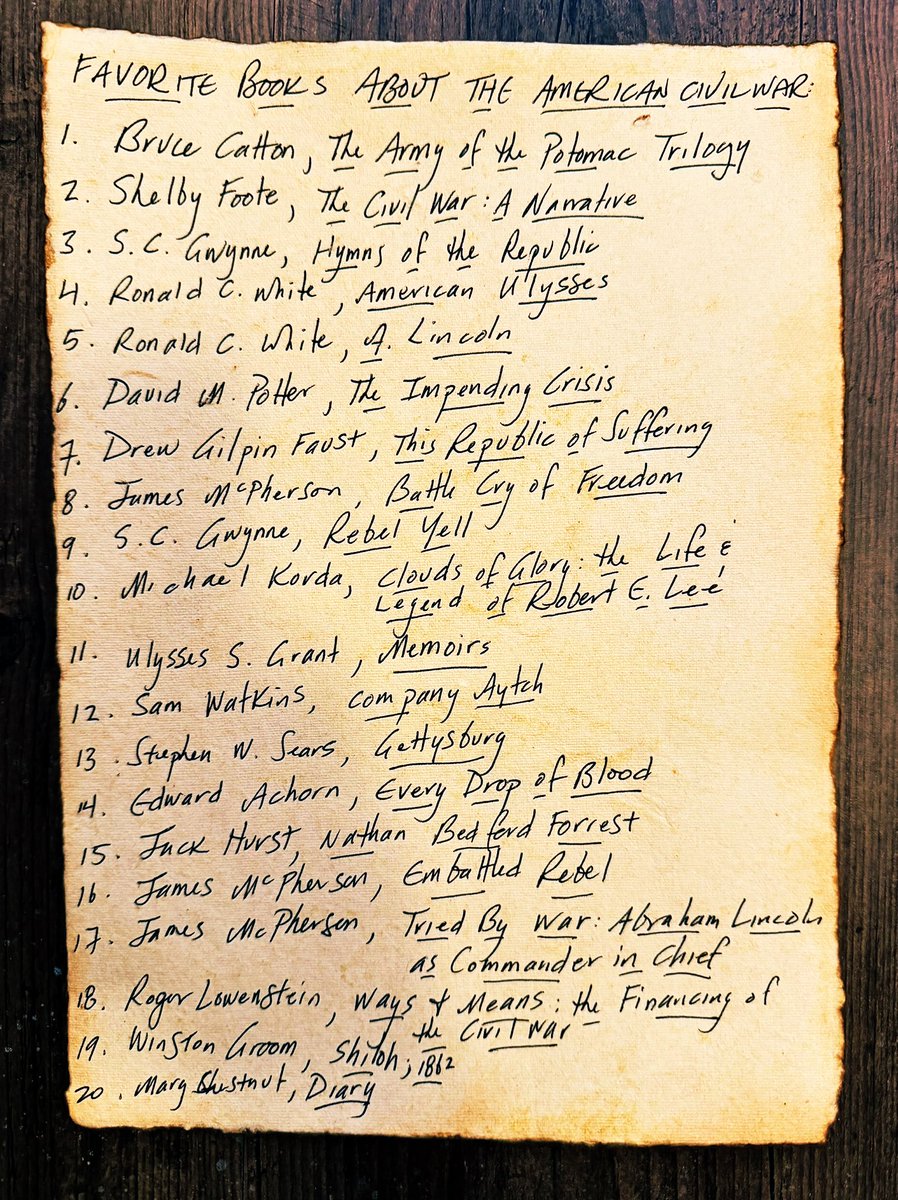 FAVORITE BOOKS ABOUT THE AMERICAN CIVIL WAR:
1. Bruce Catton, The Army of the Potomac Trilogy
2. Shelby Foote, The Civil War: A Narrative
3. S.C. Gwynne, Hymns of the Republic
4. Ronald C. White, American Ulysses
5. Ronald C. White, A. Lincoln
6. David M. Potter, The Impending Crisis
7. Drew Gilpin Faust, This Republic of Suffering
8. James McPherson, Battle Cry of Freedom
9. S.C. Gwynne, Rebel Yell
10. Michael Korda, Clouds of Glory: the Life &
Legend of Robert E. Lee
11. Ulysses S. Grant, Memoirs
12. Sam Watkins, Company Aytch
13. Stephen W. Sears, Gettysburg
14. Edward Achorn, Every Drop of Blood
15. Jack Hurst, Nathan Bedford Forrest
16. James McPherson, Embattled Rebel
17. James McPherson, Tried By War: Abraham Lincoln
as Commander in Chief
18. Roger Lowenstein, Ways & Means: the Financing of
the Civil War
19. Winston Groom, Shiloh, 1862
20. Mary Chestnut, Diary